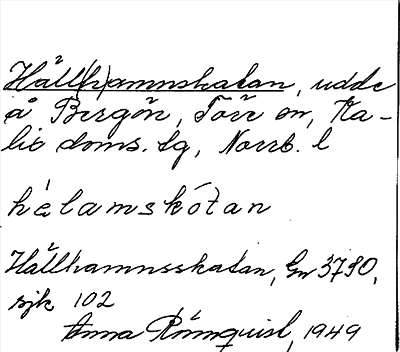 Håll(h)amnskatan, udde
å Bergön, Töre sn, Ka-
lix doms. lg, Norrb. l
hèlamskótan
Hållhamnsskatan, Gn 3790,
sjk 102
Anna Rönnquist, 1949